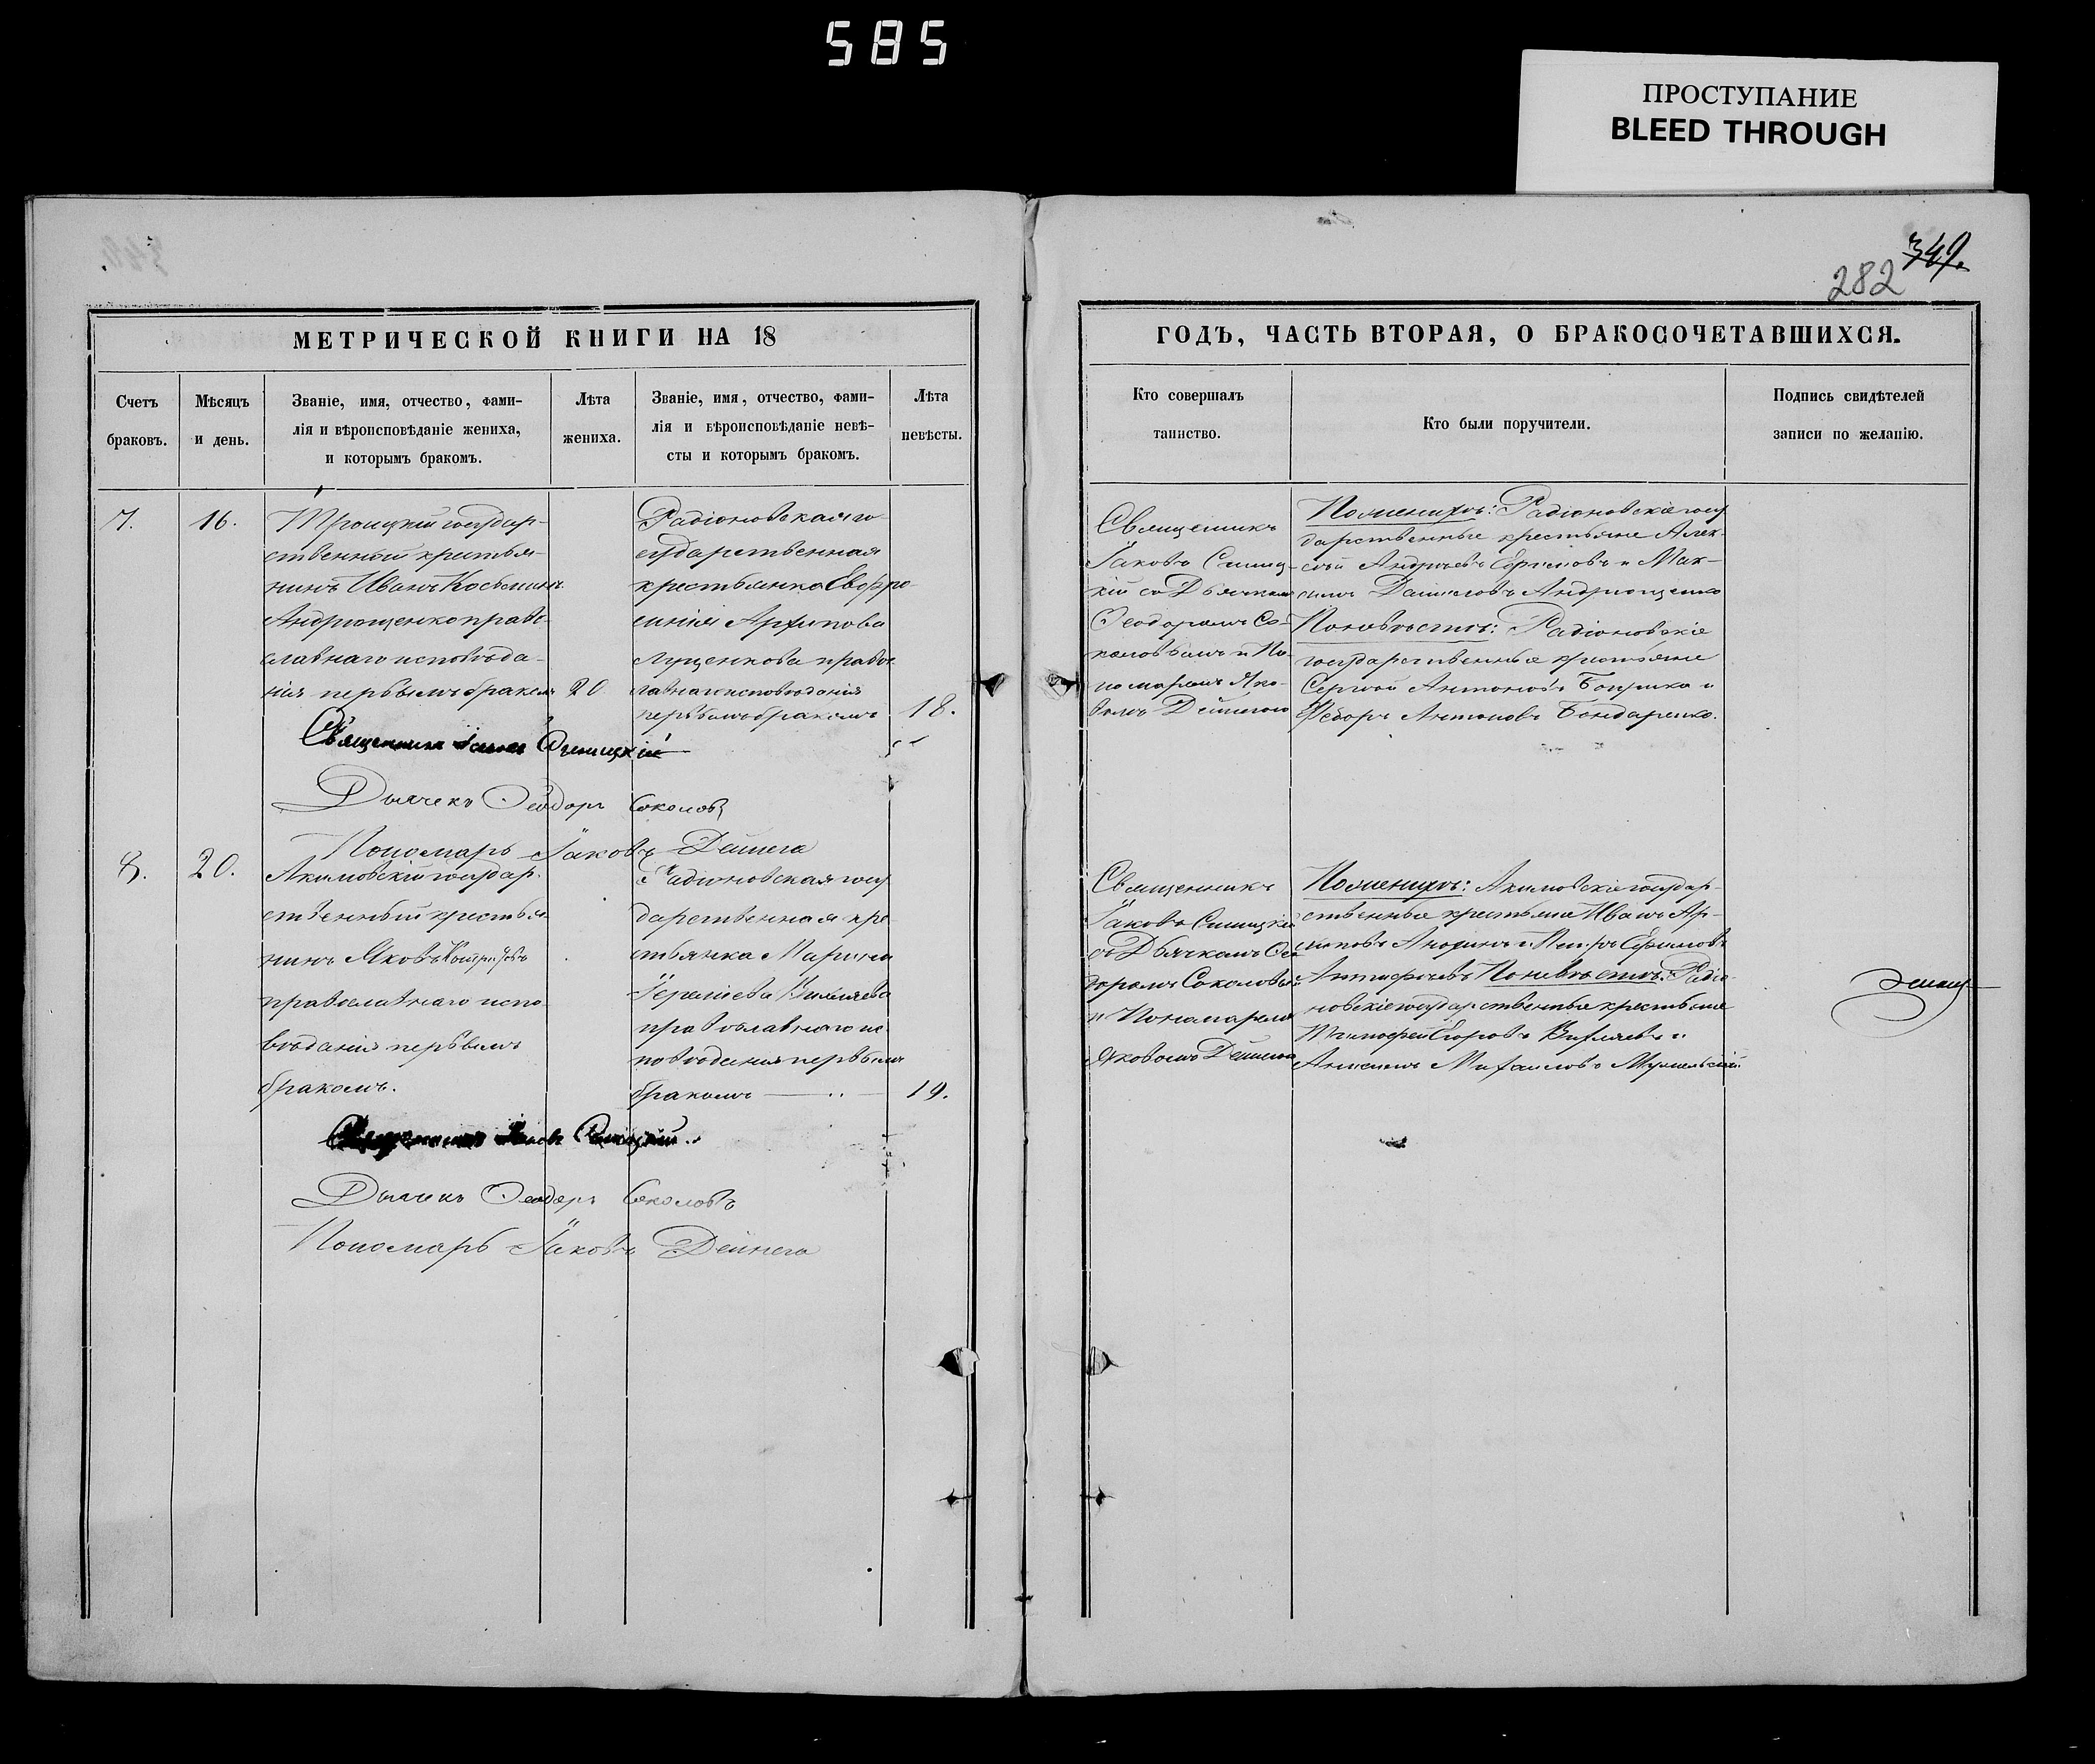 585
ПРОСТУПАНИЕ
BLEED THROUGH
349.
282
МЕТРИЧЕСКОЙ КНИГИ НА 18
Счетъ
браковъ.
Мѣсяцъ
и день.
Званіе, имя, отчество, фами-
лія и вѣроисповѣданіе жениха,
и которымъ бракомъ.
Лѣта
жениха.
Званіе, имя, отчество, фами-
лія и вѣроисповѣданіе невѣ-
сты и которымъ бракомъ.
Лѣта
невѣсты.
7.
16.
Троицкій государ-
ственный крестья-
нинъ Иванъ Косьминъ
Андрющенко право-
славнаго исповѣда-
нія первымъ бракомъ
20
Радіоновская го-
сударственная
крестьянка Евфро-
синія Архипова
Луценкова правос
лавнаго исповѣданія
первымъ бракомъ
18.
Священникъ Іаковъ Синицкій
Дьячекъ Ѳеодоръ Соколовъ
Пономарь Іаковъ Дейнега
8.
20.
Акимовскій государ-
ственный крестья
нинъ Яковъ
православнаго испо-
вѣданія первымъ
бракомъ.
Радіоновская госу
дарственная кре
стьянка Марина
православнаго ис-
повѣданія первымъ
бракомъ
19.
Священникъ Іаковъ Синицкій
Дьячекъ Ѳеодоръ Соколовъ
Пономарь Іаковъ Дейнега
ГОДЪ, ЧАСТЬ ВТОРАЯ, О БРАКОСОЧЕТАВШИХСЯ.
Кто совершалъ
таинство.
Кто были поручители.
Подпись свидѣтелей
записи по желанію.
Священникъ
Іаковъ Синиц-
кій съ Дьячкомъ
Ѳеодоромъ Со-
коловымъ и По-
номаремъ Яко-
вомъ Дейнегою
По женихѣ: Радіоновскіе госу
дарственные крестьяне Алек-
сѣй Андреевъ Ефимовъ и Мак-
симъ Даниловъ Андрющенко
По невѣстѣ: Радіоновскіе
государственные крестьяне
Сергей Антоновъ и
Ѳедоръ Антоновъ Бондаренко.
Священникъ
Іаковъ Синицкій
съ Дьячкомъ Ѳео
доромъ Соколовым
и Пономаремъ
Яковомъ Дейнегою
По женихѣ: Акимовскіе государ-
ственные крестьяне Иванъ Ар-
и Ефимовъ
По невѣстѣ: Радіо-
новскіе государственные крестьяне
Тимофей и
Михаиловъ